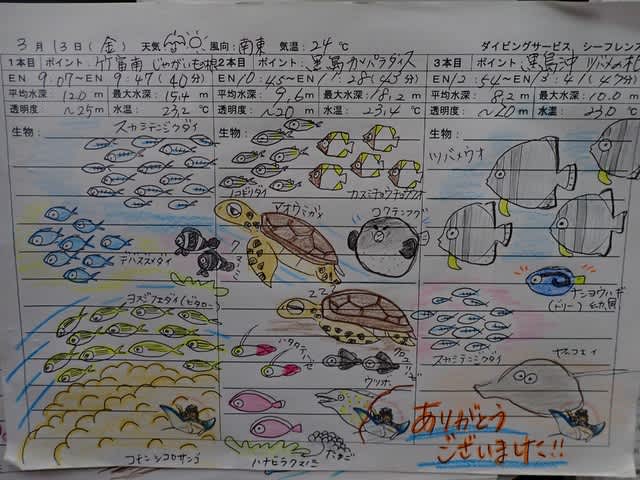 3月13日(金) 天気 風向:南東 気温:24℃ ダイビングサービス、シーフレンズ
1本目 ポイント:竹富南 じゃがいも根 2本目 ポイント:黒島カメパラダイス 3本目 ポイント:黒島沖 ツバメの礼
EN 9:07〜EN 9:47(40分) EN 10:45〜EN 11:28(43分) EN 12:54〜EN 13:41(47分)
平均水深: 12.0m 最大水深: 15.4m 9.6m 最大水深: 18.2m 平均水深: 8.2m 最大水深: 10.0m
透明度: 〜25m 水温: 23.2℃ 透明度: 〜20m 水温: 23.4℃ 透明度: 〜20m 水温: 23.0℃
生物: スカシテンジクダイ
デバスズメダイ
クマノミ
ヨスジフエダイ(ビタロー)
コモンシコロサンゴ
生物:
ノコギリダイ
カスミチョウチョウウオ
アオウミガメ
コクテンフグ
ZZZ
ハタタテハゼ
クロユリハゼ
ウツボ
ハナビラクマノミ
たまご
生物:
ツバメウオ
ナンヨウハギ
(ドリー)
スカシテンジクダイ
ヤッコエイ
ありがとう
ございました!!